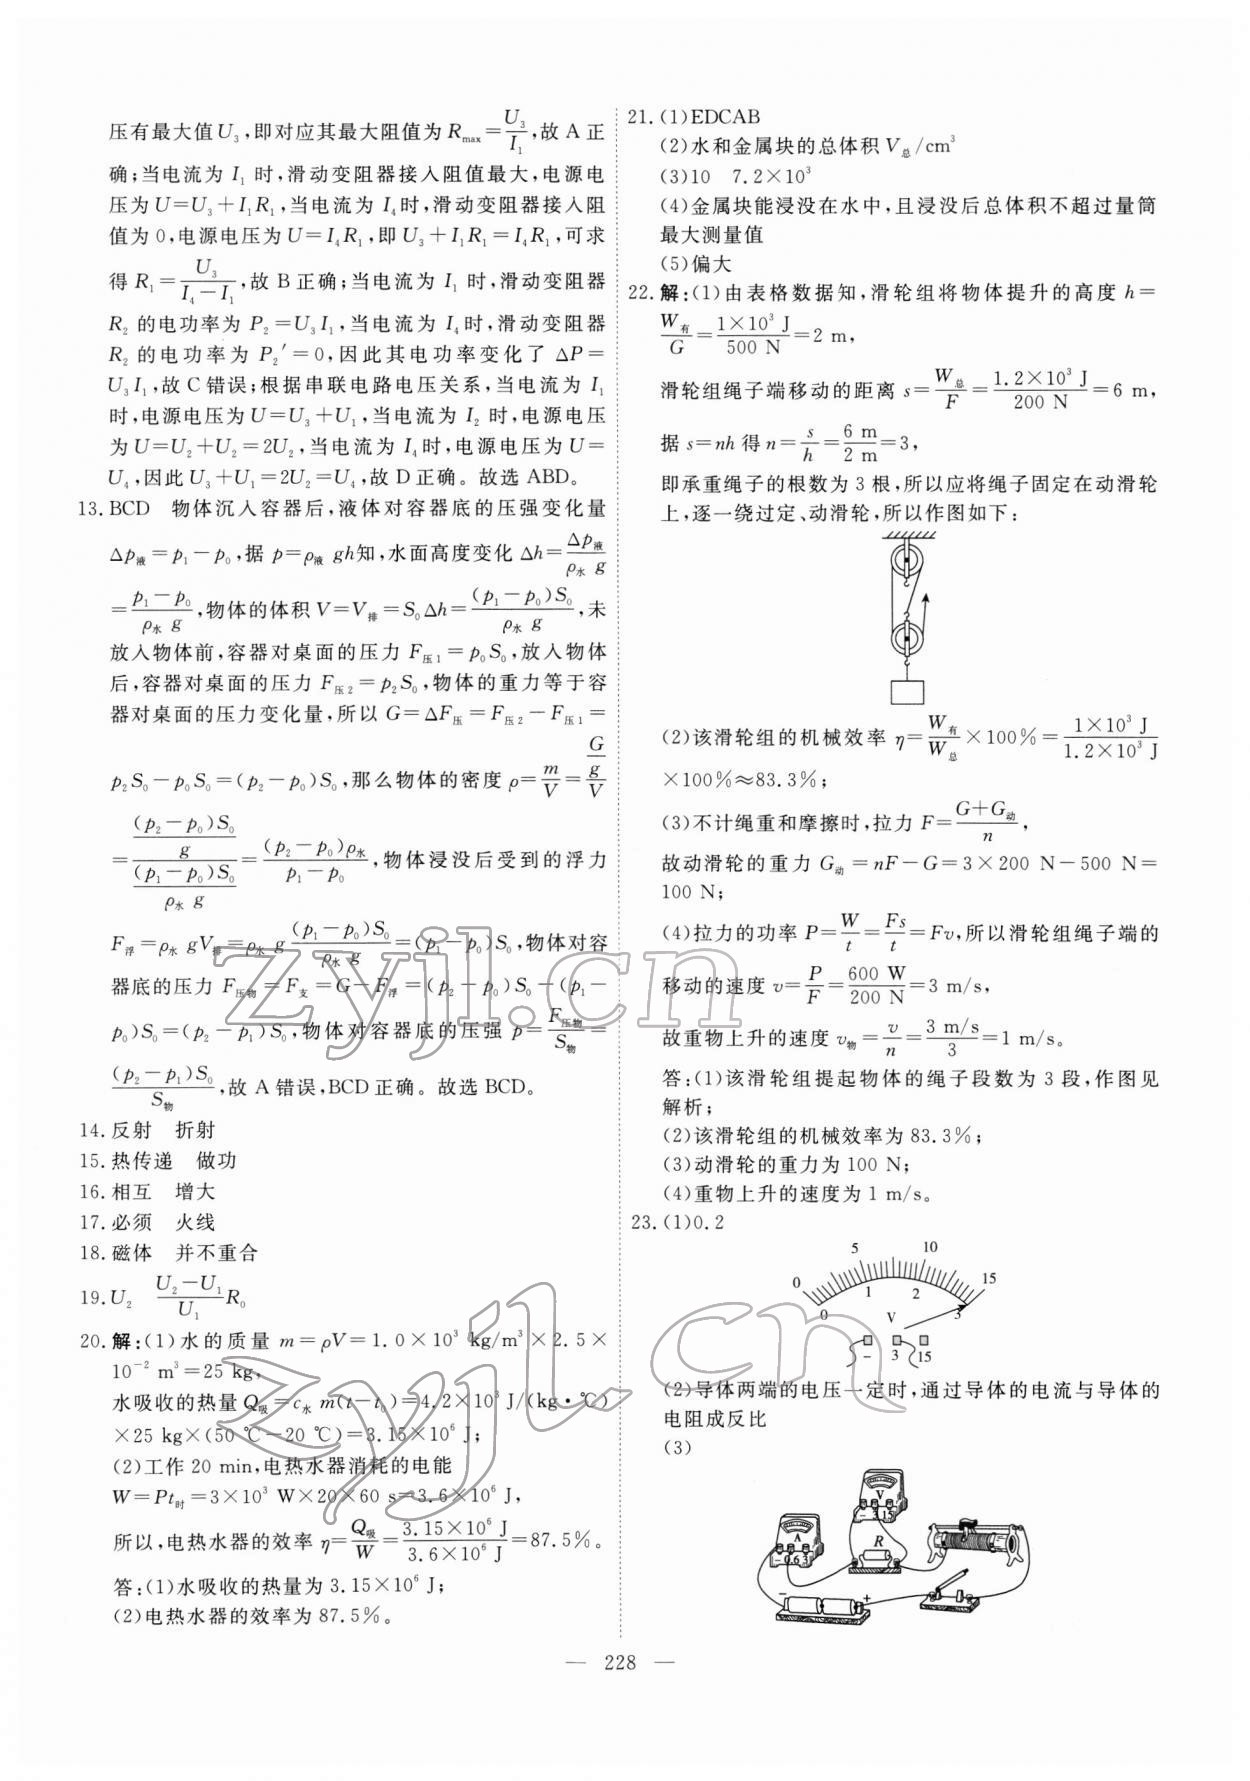 压有最大值U₃,即对应其最大阻值为Rmax=U₃/I₁,故A正
确;当电流为I₁时,滑动变阻器接入阻值最大,电源电
压为U=U₃+I₁R₁,当电流为I₄时,滑动变阻器接入阻
值为0,电源电压为U=I₄R₁,即U₃+I₁R₁=I₄R₁,可求
得R₁=U₃/(I₄-I₁),故B正确;当电流为I₁时,滑动变阻器
R₂的电功率为P₂=U₃I₁,当电流为I₄时,滑动变阻器
R₂的电功率为P₂′=0,因此其电功率变化了ΔP=
U₃I₁,故C错误;根据串联电路电压关系,当电流为I₁
时,电源电压为U=U₃+U₁,当电流为I₂时,电源电压
为U=U₂+U₂=2U₂,当电流为I₄时,电源电压为U=
U₄,因此U₃+U₁=2U₂=U₄,故D正确。故选ABD。
13.BCD 物体沉入容器后,液体对容器底的压强变化量
Δp液=p₁-p₀,据p=ρ液gh知,水面高度变化Δh=Δp液/(ρ水g)
=(p₁-p₀)/(ρ水g),物体的体积V=V排=S₀Δh=(p₁-p₀)S₀/(ρ水g),未
放入物体前,容器对桌面的压力F压1=p₀S₀,放入物体
后,容器对桌面的压力F压2=p₂S₀,物体的重力等于容
器对桌面的压力变化量,所以G=ΔF压=F压2-F压1=
p₂S₀-p₀S₀=(p₂-p₀)S₀,那么物体的密度ρ=m/V=(G/g)/V
=((p₂-p₀)S₀/g)/((p₁-p₀)S₀/(ρ水g))=(p₂-p₀)ρ水/(p₁-p₀),物体浸没后受到的浮力
F浮=ρ水gV排=ρ水g(p₁-p₀)S₀/(ρ水g)=(p₁-p₀)S₀,物体对容
器底的压力F压物=F支=G-F浮=(p₂-p₀)S₀-(p₁-
p₀)S₀=(p₂-p₁)S₀,物体对容器底的压强p=F压物/S物=
(p₂-p₁)S₀/S物,故A错误,BCD正确。故选BCD。
14.反射 折射
15.热传递 做功
16.相互 增大
17.必须 火线
18.磁体 并不重合
19.U₂ (U₂-U₁)/U₁ R₀
20.解:(1)水的质量m=ρV=1.0×10³ kg/m³×2.5×
10⁻² m³=25 kg,
水吸收的热量Q吸=c水m(t-t₀)=4.2×10³ J/(kg·℃)
×25 kg×(50 ℃-20 ℃)=3.15×10⁶ J;
(2)工作20 min,电热水器消耗的电能
W=Pt时=3×10³ W×20×60 s=3.6×10⁶ J,
所以,电热水器的效率η=Q吸/W=3.15×10⁶ J/3.6×10⁶ J=87.5%。
答:(1)水吸收的热量为3.15×10⁶ J;
(2)电热水器的效率为87.5%。
21.(1)EDCAB
(2)水和金属块的总体积V总/cm³
(3)10 7.2×10³
(4)金属块能浸没在水中,且浸没后总体积不超过量筒
最大测量值
(5)偏大
22.解:(1)由表格数据知,滑轮组将物体提升的高度h=
W有/G=1×10³ J/500 N=2 m,
滑轮组绳子端移动的距离s=W总/F=1.2×10³ J/200 N=6 m,
据s=nh得n=s/h=6 m/2 m=3,
即承重绳子的根数为3根,所以应将绳子固定在动滑轮
上,逐一绕过定、动滑轮,所以作图如下:
(2)该滑轮组的机械效率η=W有/W总×100%=1×10³ J/1.2×10³ J
×100%≈83.3%;
(3)不计绳重和摩擦时,拉力F=(G+G动)/n,
故动滑轮的重力G动=nF-G=3×200 N-500 N=
100 N;
(4)拉力的功率P=W/t=Fs/t=Fv,所以滑轮组绳子端的
移动的速度v=P/F=600 W/200 N=3 m/s,
故重物上升的速度v物=v/n=3 m/s/3=1 m/s。
答:(1)该滑轮组提起物体的绳子段数为3段,作图见
解析;
(2)该滑轮组的机械效率为83.3%;
(3)动滑轮的重力为100 N;
(4)重物上升的速度为1 m/s。
23.(1)0.2
0 5 10 15
0 1 2 3
V
- 3 15
(2)导体两端的电压一定时,通过导体的电流与导体的
电阻成反比
(3)
V
- 3 15
A
- 0.6 3
R
- +
— 228 —
zyjl.cn
zyjl.cn